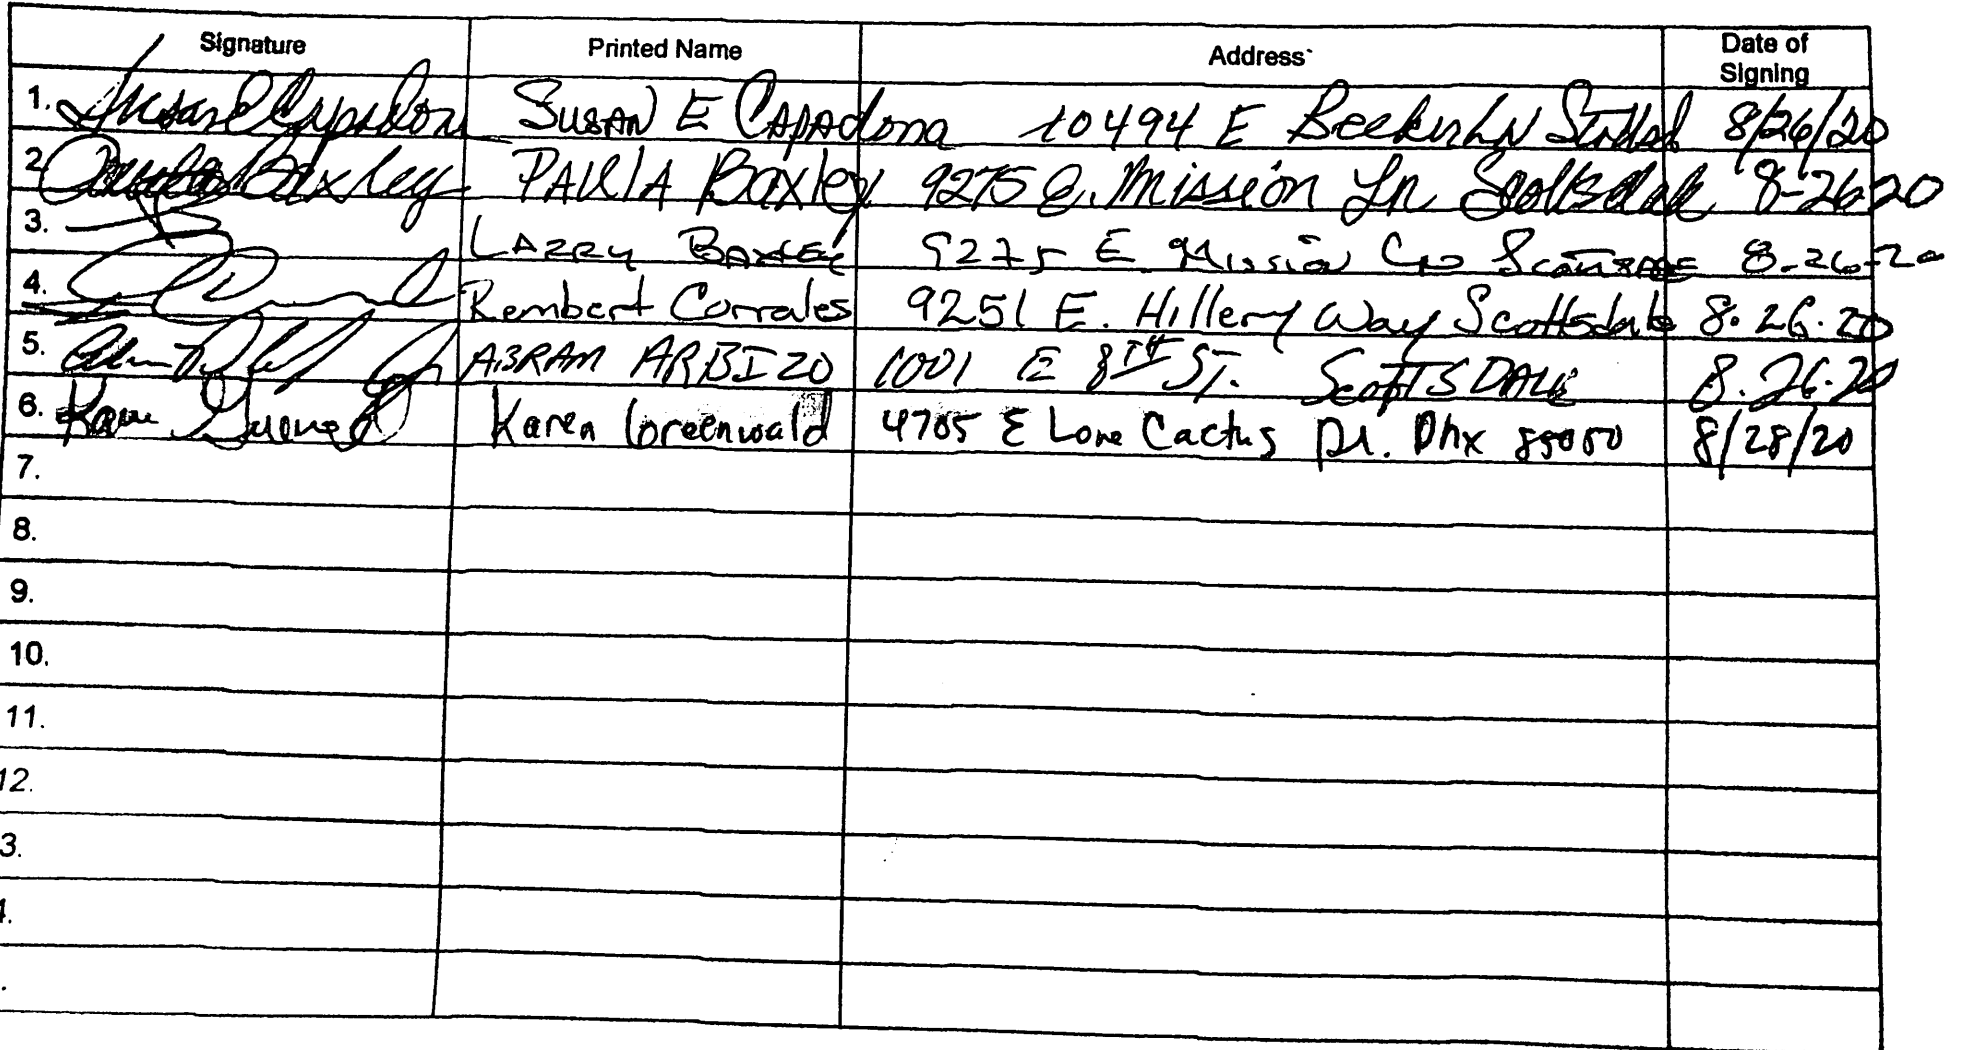 Signature Printed Name Address Date of Signing
1. Susan E Capadona SUSAN E CAPAdona 10494 E Becker LN 8/26/20
2. Paula Baxley PAUlA Baxley 9275 E. Mission Ln Scottsdale 8-26-20
3. LARRY BAXLEY 9275 E Mission LN Scottsdale 8-26-20
4. Rembert Corrales 9251 E. Hillery Way Scottsdale 8.26.20
5. ABRAM ARBIZO 1001 E 8TH ST. ScoTTSDALE 8.26.20
6. Karen Greenwald 4705 E Lone Cactus Dr. Phx 85050 8/28/20
7.
8.
9.
10.
11.
12.
3.
4.
.